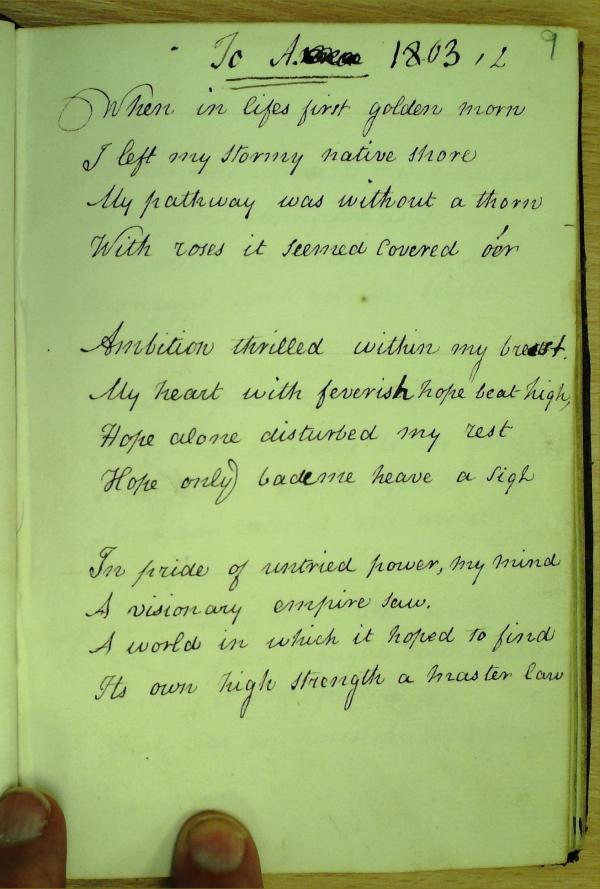 To A. 1803, 2
9
When in lifes first golden morn
I left my stormy native shore
My pathway was without a thorn
With roses it seemed covered o'er
Ambition thrilled within my breast.
My heart with feverish hope beat high,
Hope alone disturbed my rest
Hope only) bade me heave a sigh
In pride of untried power, my mind
A visionary empire saw.
A world in which it hoped to find
Its own high strength a master law